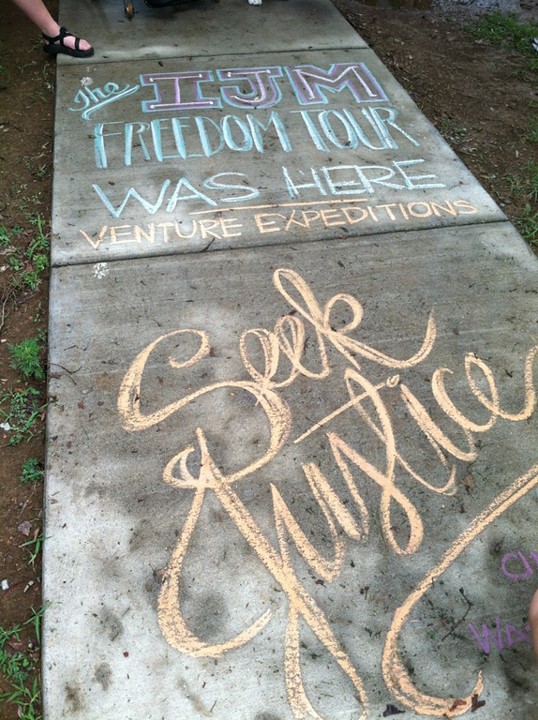 The IJM
FREEDOM TOUR
WAS HERE
VENTURE EXPEDITIONS
Seek
Justice